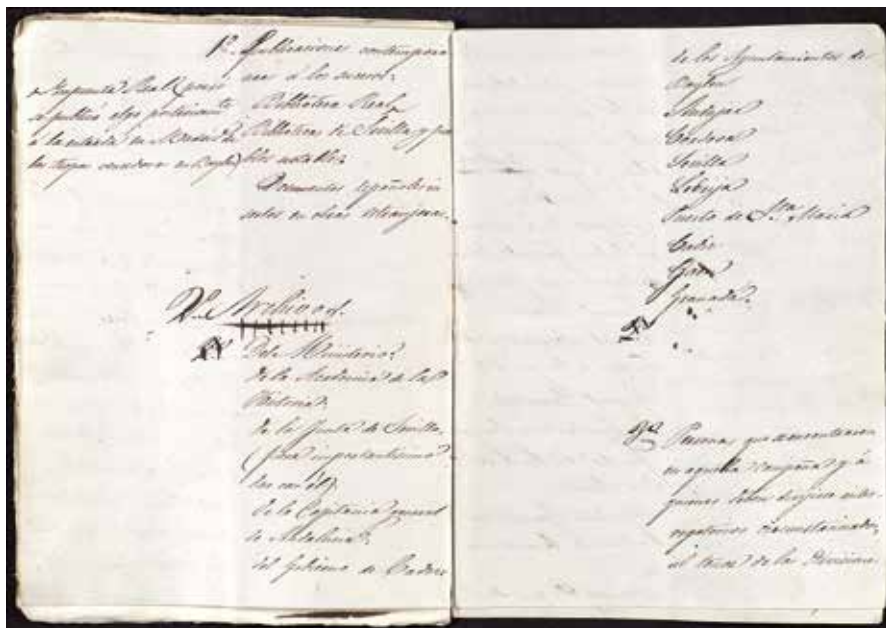 1º Publicaciones contempora
neas a los sucesos.
Biblioteca Real
Bibliotecas de Sevilla, y pue
blos notables
Documentos españoles in
sertos en obras extranjeras.
e Imprenta Real pues
se publicó algo perteneciente
a la entrada en Madrid de
las tropas vencedoras en Baylen
2º Archivos.
Del Ministerio.
de la Academia de la
Historia.
de la Junta de Sevilla,
de la Capitanía general
de Andalucía.
del Gobierno de
de los Ayuntamientos de
Baylen
Andujar
Cordova
Sevilla
Lebrija
Puerto de Sta. Maria
Cadiz
Jaen
Granada.
3º Personas que
en aquella campaña y á
quienes deben dirijirse inter
regatorios circunstanciados,
al tenor de las Divisiones